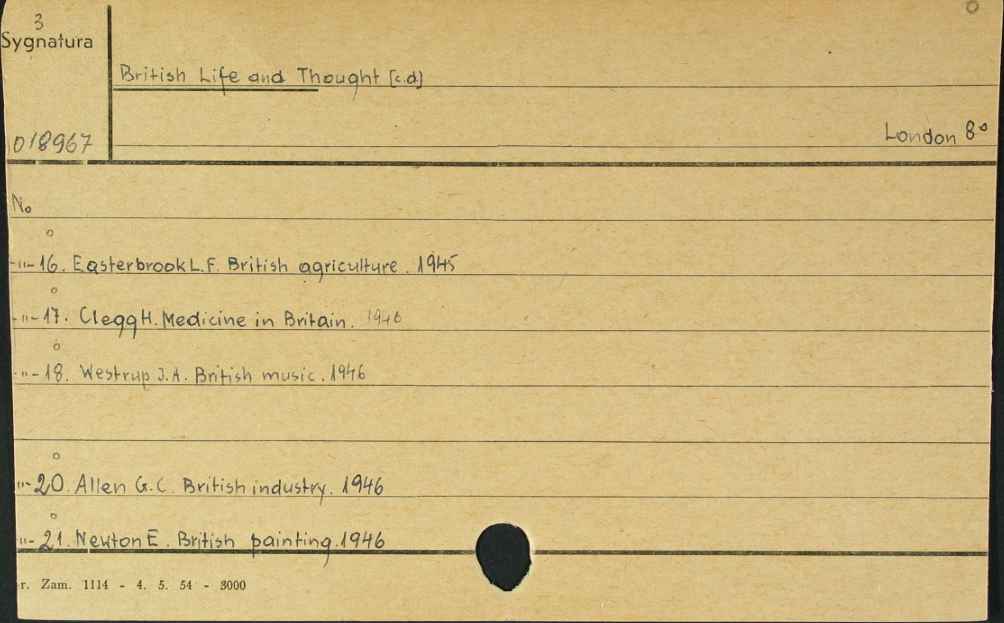 3
Sygnatura
British Life and Thought [c.d]
018967
London 8°
No
-"- 16. Easterbrook L.F. British agriculture. 1945
-"- 17. Clegg H. Medicine in Britain. 1946
-"- 18. Westrup J.A. British music. 1946
-"- 20. Allen G.C. British industry. 1946
-"- 21. Newton E. British painting. 1946
r. Zam. 1114 - 4. 5. 54 - 3000